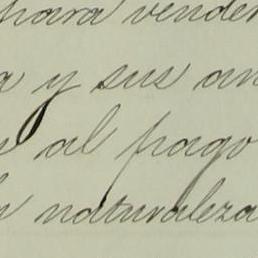 para vender
y sus an
al pago
naturaleza